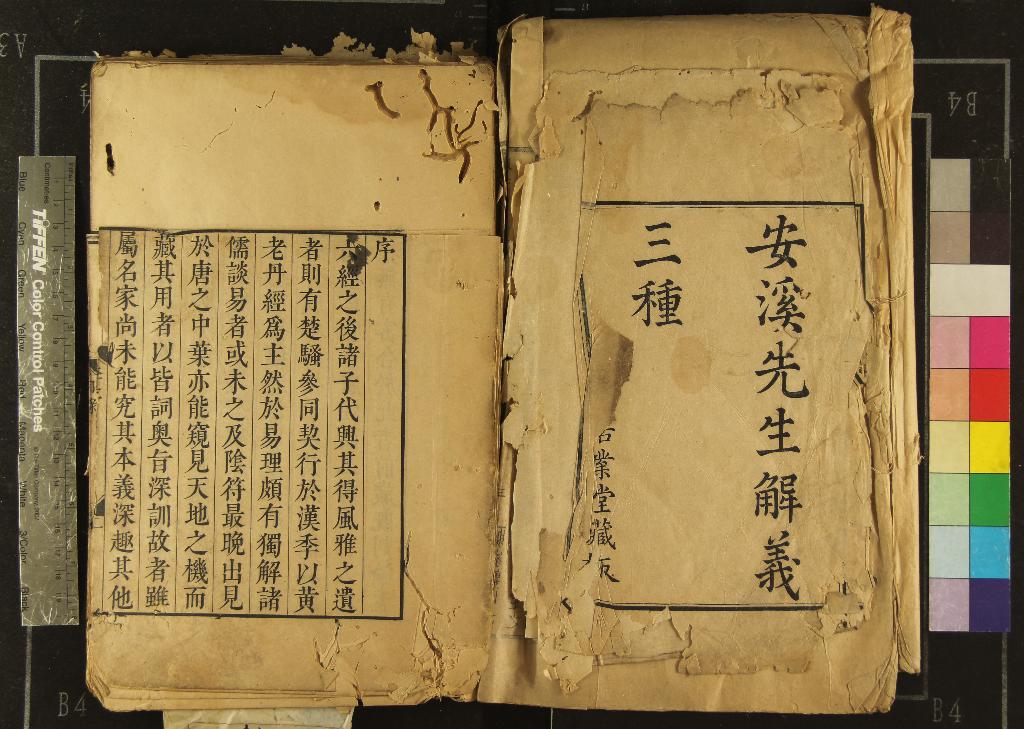 安溪先生解義
三種
業堂藏板
序
六經之後諸子代興其得風雅之遺
者則有楚騷參同契行於漢季以黃
老丹經爲主然於易理頗有獨解諸
儒談易者或未之及陰符最晚出見
於唐之中葉亦能窺見天地之機而
藏其用者以皆詞奧旨深訓故者雖
屬名家尚未能究其本義深趣其他
TIFFEN Color Control Patches
Centimetres
Blue
Cyan
Green
Yellow
Red
Magenta
White
3/Color
Black
A3
B4
B4
B4
B4